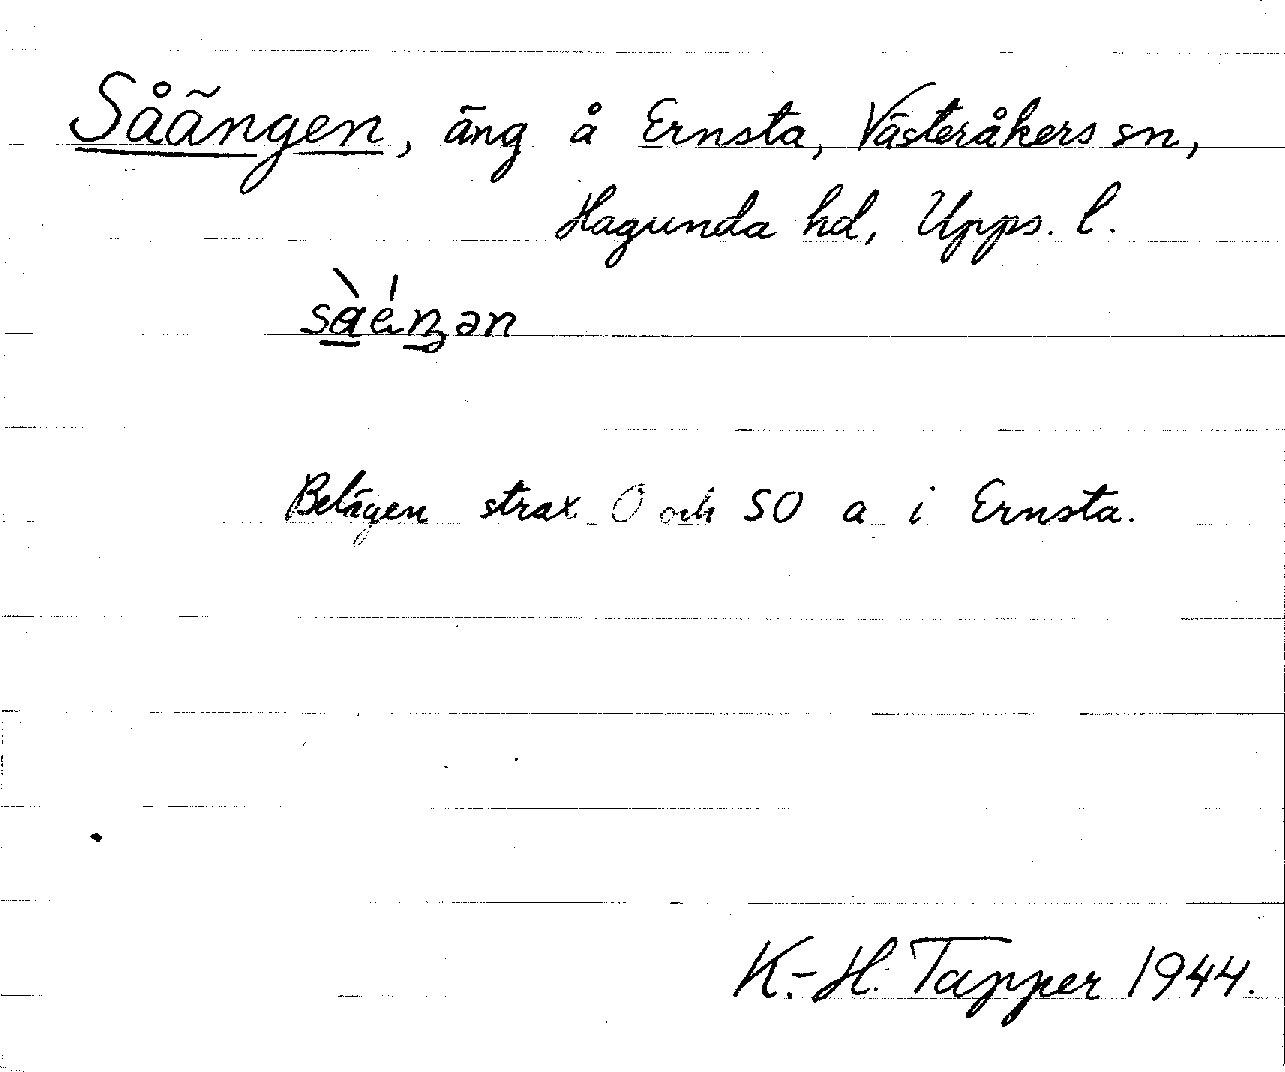 Såängen, äng å Ernsta, Västeråkers sn,
Hagunda hd, Upps. l.
sàéŋən
Belägen strax O och SO a i Ernsta.
K.-H. Tapper 1944.